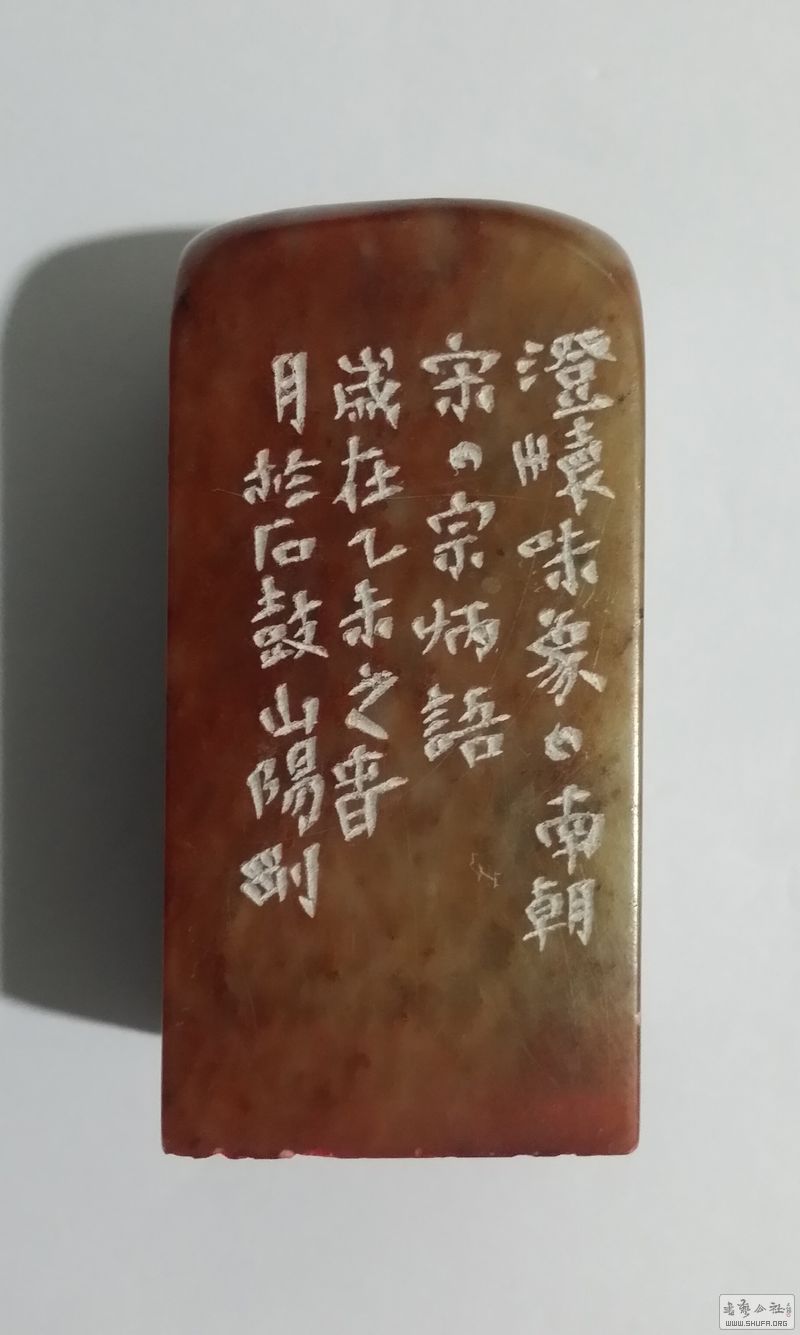 澄懷味象、南朝
宋、宗炳語
歲在乙未之春
月於石鼓山陽
書藝公社
WWW.SHUFA.ORG